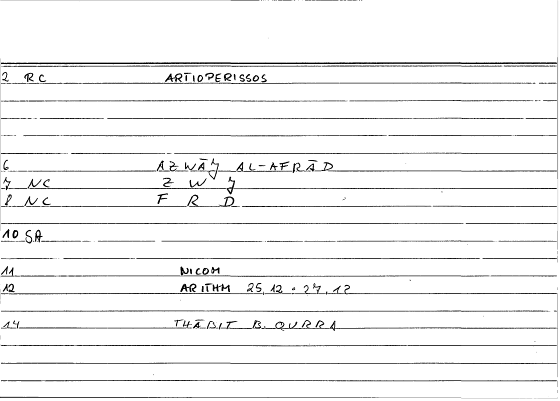 2 RC ARTIOPERISSOS
6 AZWĀǦ AL-AFRĀD
7 NC Z W Ǧ
8 NC F R D
10 SA
11 NICOM
12 ARITHM 25,12 = 27,12
14 THĀBIT B. QURRA